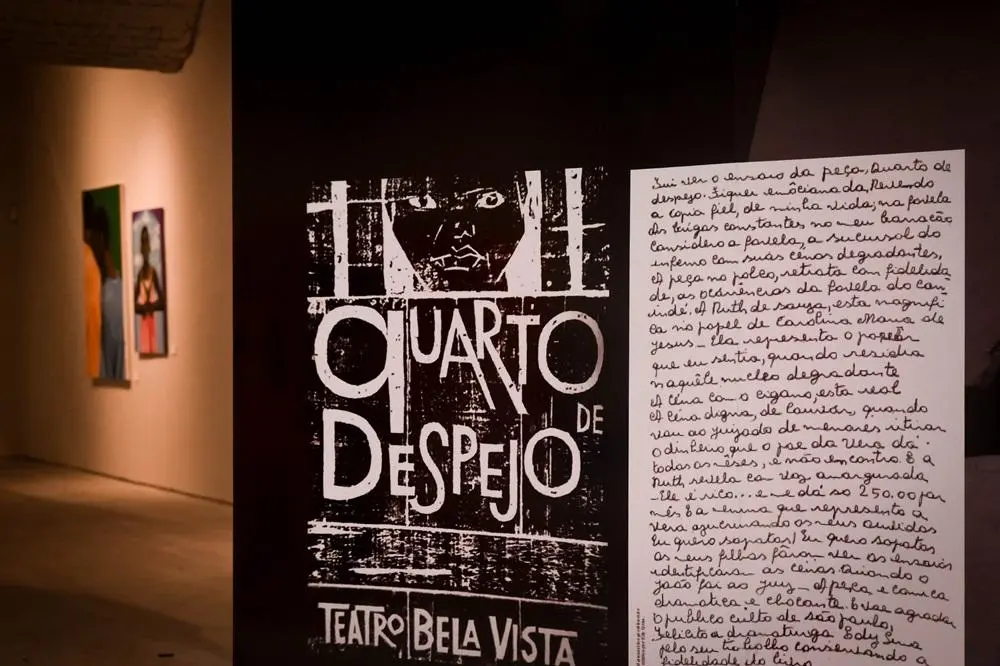 QUARTO
DE
DESPEJO
TEATRO BELA VISTA
Fui ver o ensaio da peça, Quarto de
despejo. Fiquei emôcianada, Revendo
a copia fiel, de minha vida, na favela
As brigas constantes no meu barracão
Considero a favela, a sucursal do
inferno com suas cenas degradantes,
A peça no palco, retrata com fidelida
de, as ocorrências da favela do Can-
indé. A Ruth de souza, esta magnifi
ca no papel de Carolina Maria de
Jesus — Ela representa o
que eu sentia, quando residia
naquêle nucleo degradante
A cena com o cigano, esta real
A cena digna, de louvor, quando
vou ao juizado de menores retirar
o dinheiro que o pae da Vera dá.
todos os mêses, e não encontro. E a
Ruth revela com voz amargurada
— Ele é rico... e me dá so 250.00 por
mês E a menina que representa a
Vera azucrinando os meus ouvidos
Eu quero sapatos! Eu quero sapatos
Os meus filhos foram ver os ensaios
identificaram as cenas o
João foi ao juiz — A peça e comica
dramatica, e chocante. E vae agradar
o publico culto de são paulo,
Felicito a dramaturga. Edy Lima
pelo seu trabalho conservando a
fidelidade do livro